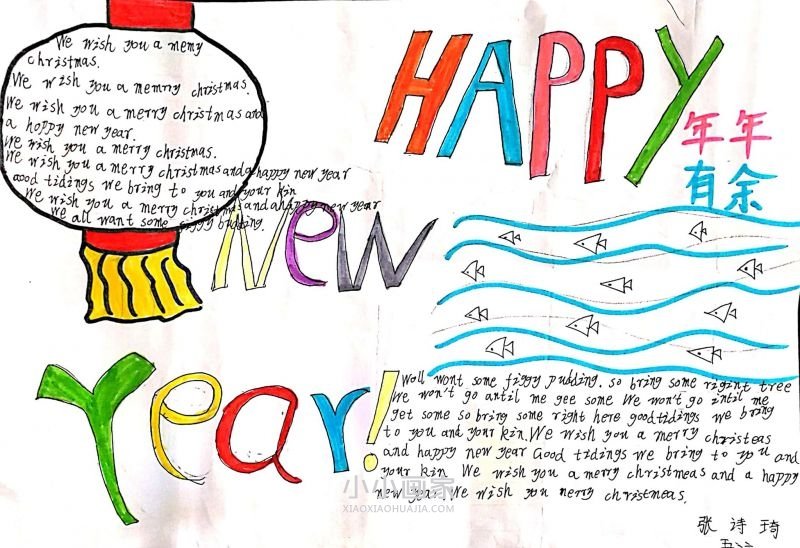 We wish you a memy
christmas.
We wish you a memrry christmas.
We wish you a merry christmas and
a hoppy new year.
We wish you a merry christmas.
We wish you a merry christmas and a happy new year
Good tidings we bring to you and your kin
We wish you a merry christmas and a happy new year
We all want some figgy pudding.
HAPPY
年年
有余
New
Year!
Wall wont some figgy pudding. so bring some rigint tree
We won't go antil me gee some We won't go intil me
get some so bring some right here good tidings we bring
to you and your kin. We wish you a merry christeas
and happy new year Good tidings we bring to you and
your kin We wish you a merry christmeas and a happy
new year We wish you merry christmeas.
小小画家
XIAOXIAOHUAJIA.COM
张诗琦